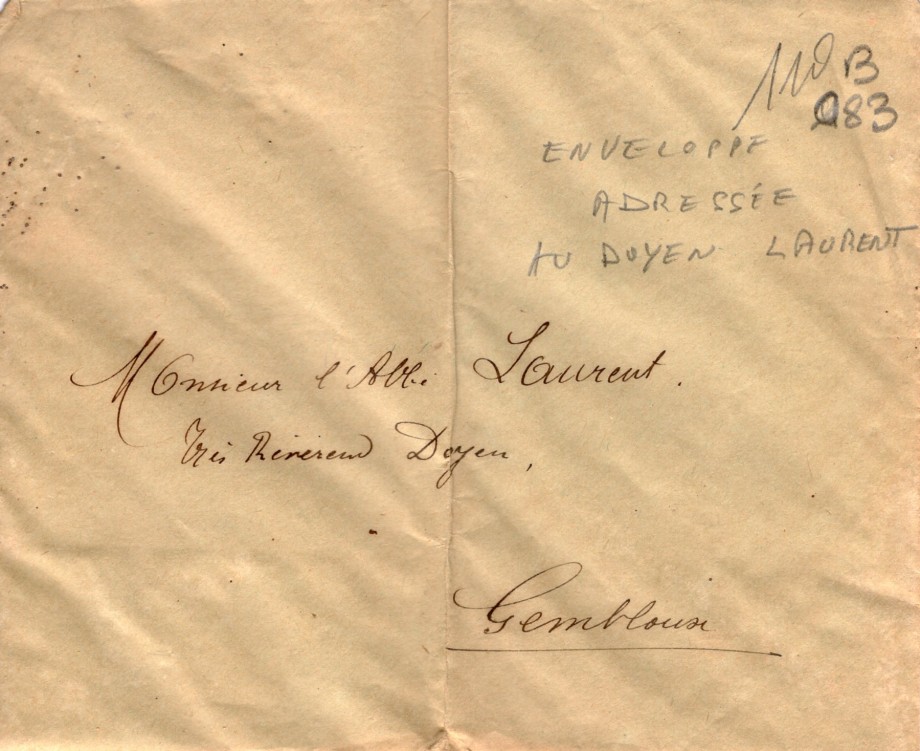 110 B
983
ENVELOPPE
ADRESSÉE
AU DOYEN LAURENT
Monsieur l'Abbé Laurent.
Très Révérend Doyen,
Gembloux